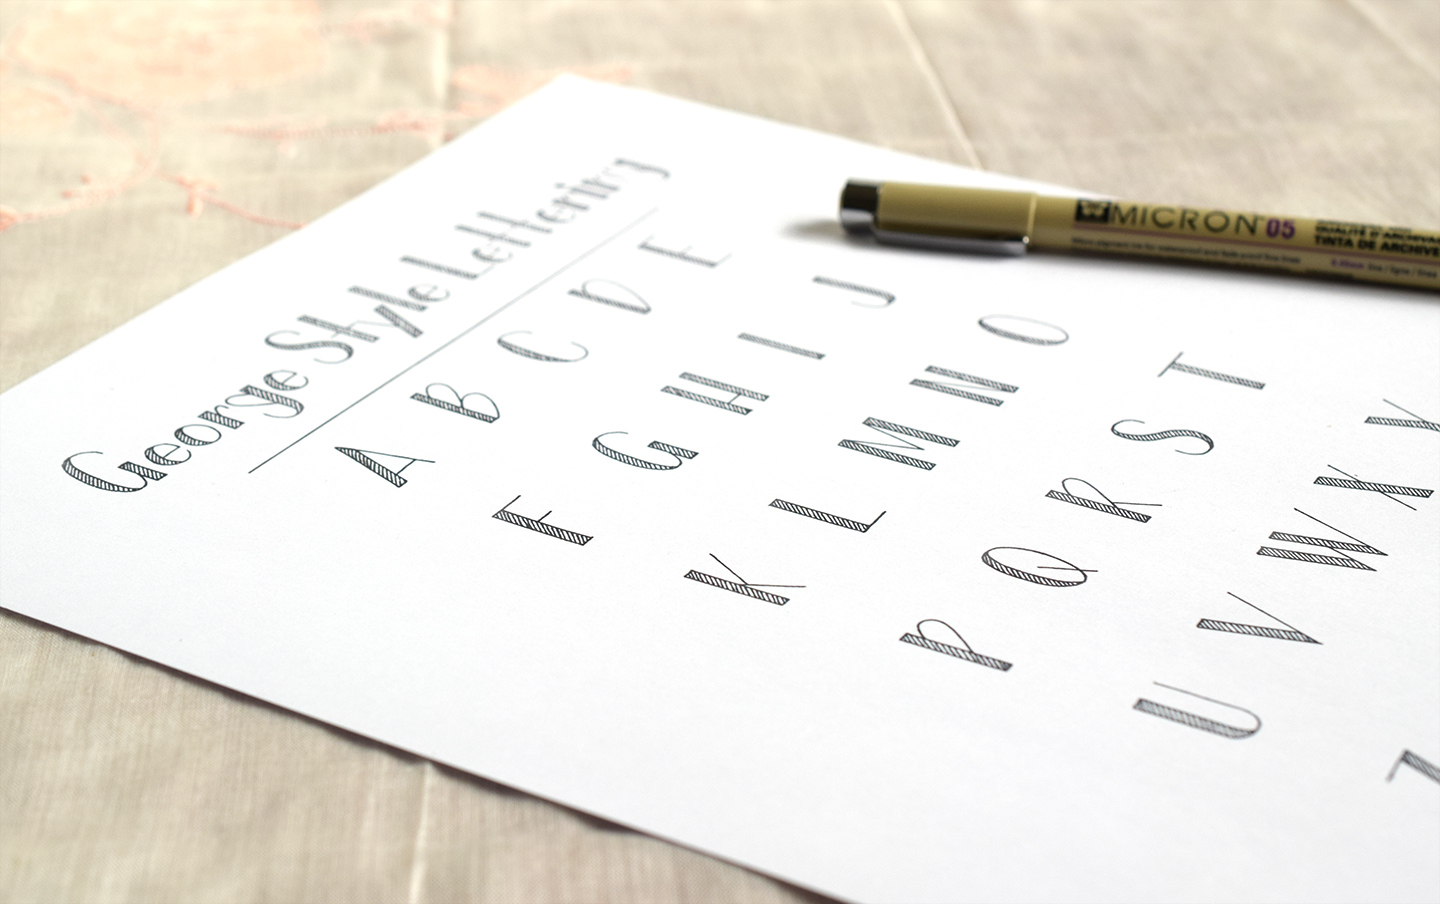 George Style Lettering
A B C D E
F G H I J
K L M N O
P Q R S T
U V W X Y
Z
MICRON 05
QUALITÉ D'ARCHIVA
TINTA DE ARCHIVE